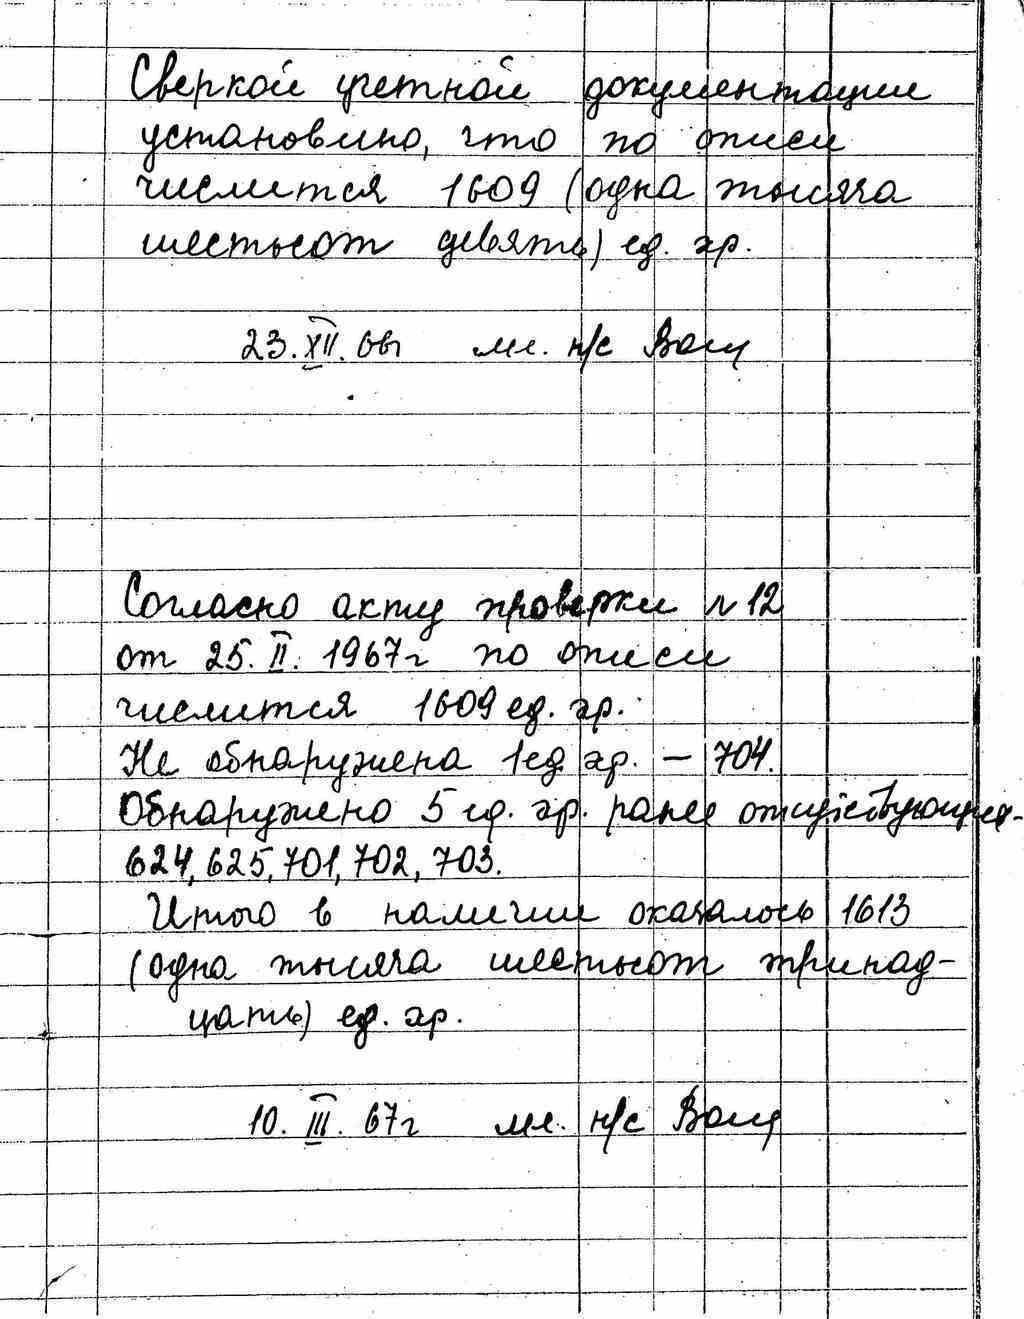 Сверкой учетной документации
установлено, что по описи
числится 1609 (одна тысяча
шестьсот девять) ед. хр.
23.XII.66г мл. н/с
Согласно акту проверки №12
от 25.II.1967г по описи
числится 1609 ед. хр.
Не обнаружена 1 ед хр. – 704.
Обнаружено 5 ед. хр. ранее отсутствующих-
624, 625, 701, 702, 703.
Итого в наличии оказалось 1613
(одна тысяча шестьсот тринад-
цать) ед. хр.
10.III.67г мл. н/с